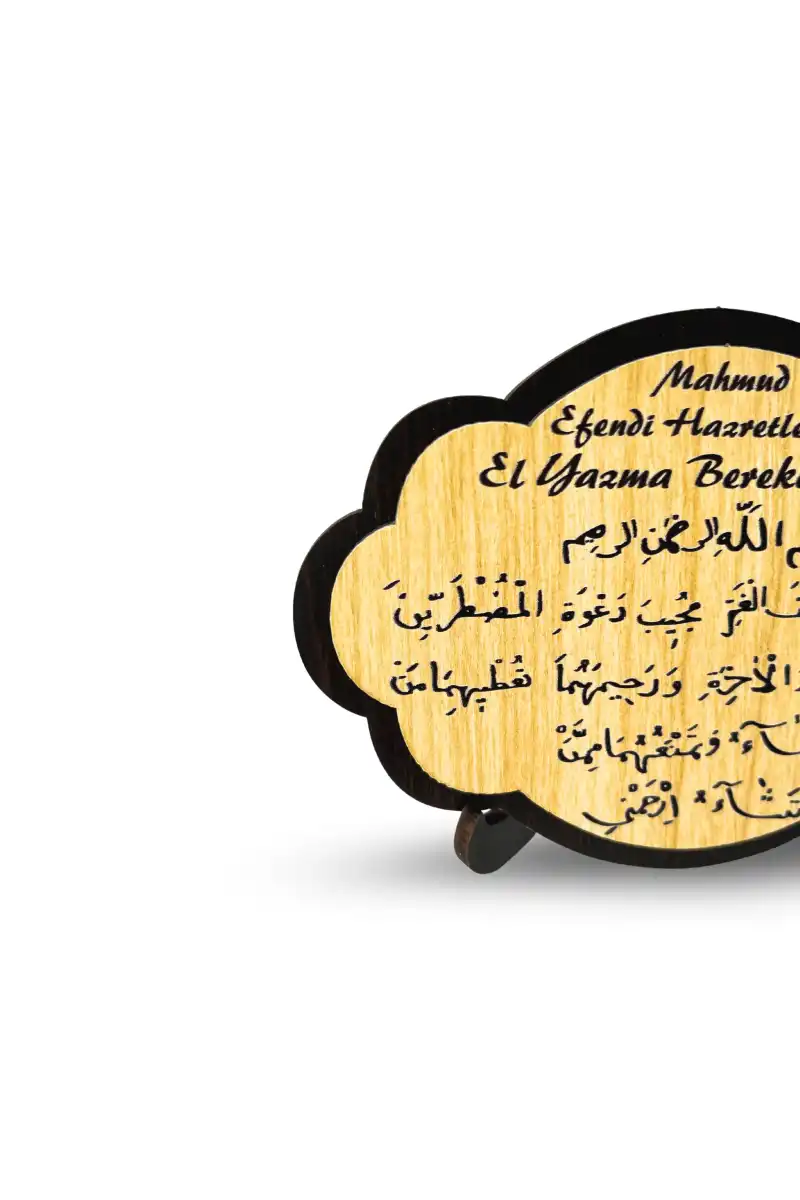 Mahmud
Efendi Hazretle
El Yazma Berek
م اللّٰهِ الرحْمٰنِ الرحِيمِ
فَ الْغَمِّ مُجِيبَ دَعْوَةِ الْمُضْطَرِّينَ
الْاٰخِرَةِ وَرَحِيمَهُمَا تُعْطِيهِمَا مَنْ
شَآءُ وَتَمْنَعُهُمَا مِمَّنْ
تَشَآءُ اِرْحَمْنِي